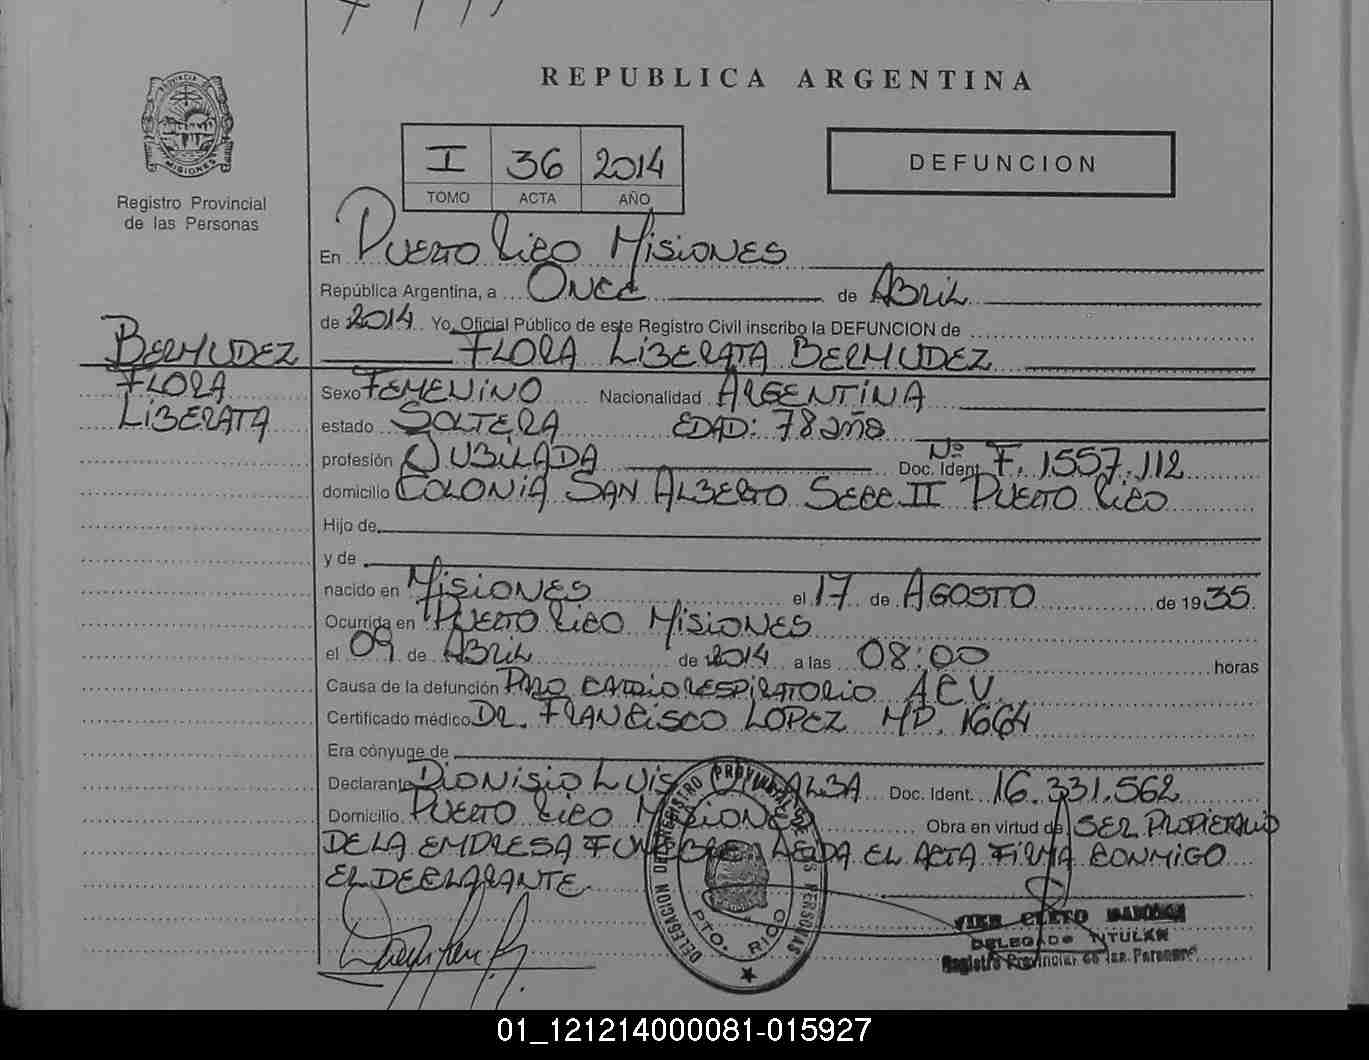 REPUBLICA ARGENTINA
PROVINCIA
MISIONES
Registro Provincial
de las Personas
I 36 2014
TOMO ACTA AÑO
DEFUNCION
En PUERTO RICO MISIONES
República Argentina, a ONCE de ABRIL
de 2014 Yo, Oficial Público de este Registro Civil inscribo la DEFUNCION de
FLORA LIBERATA BERMUDEZ
BERMUDEZ
FLORA
LIBERATA
Sexo FEMENINO Nacionalidad ARGENTINA
estado SOLTERA EDAD: 78 años
profesión JUBILADA Doc. Ident. Nº F. 1557.112
domicilio COLONIA SAN ALBERTO SECC II PUERTO RICO
Hijo de
y de
nacido en MISIONES el 17 de AGOSTO de 1935.
Ocurrida en PUERTO RICO MISIONES
el 09 de ABRIL de 2014 a las 08:00 horas
Causa de la defunción PARO CARDIORESPIRATORIO ACV.
Certificado médico DR. FRANCISCO LOPEZ MP. 1664
Era cónyuge de
Declarante DIONISIO LUIS Doc. Ident. 16.331.562
Domicilio PUERTO RICO MISIONES Obra en virtud de SER PROPIETARIO
DE LA EMPRESA FUNEBRE LEIDA EL ACTA FIRMA CONMIGO
EL DECLARANTE
DELEGACION DEL REGISTRO PROVINCIAL DE LAS PERSONAS
PTO. RICO
CLETO
DELEGADO TITULAR
Registro Provincial de las Personas
01_121214000081-015927